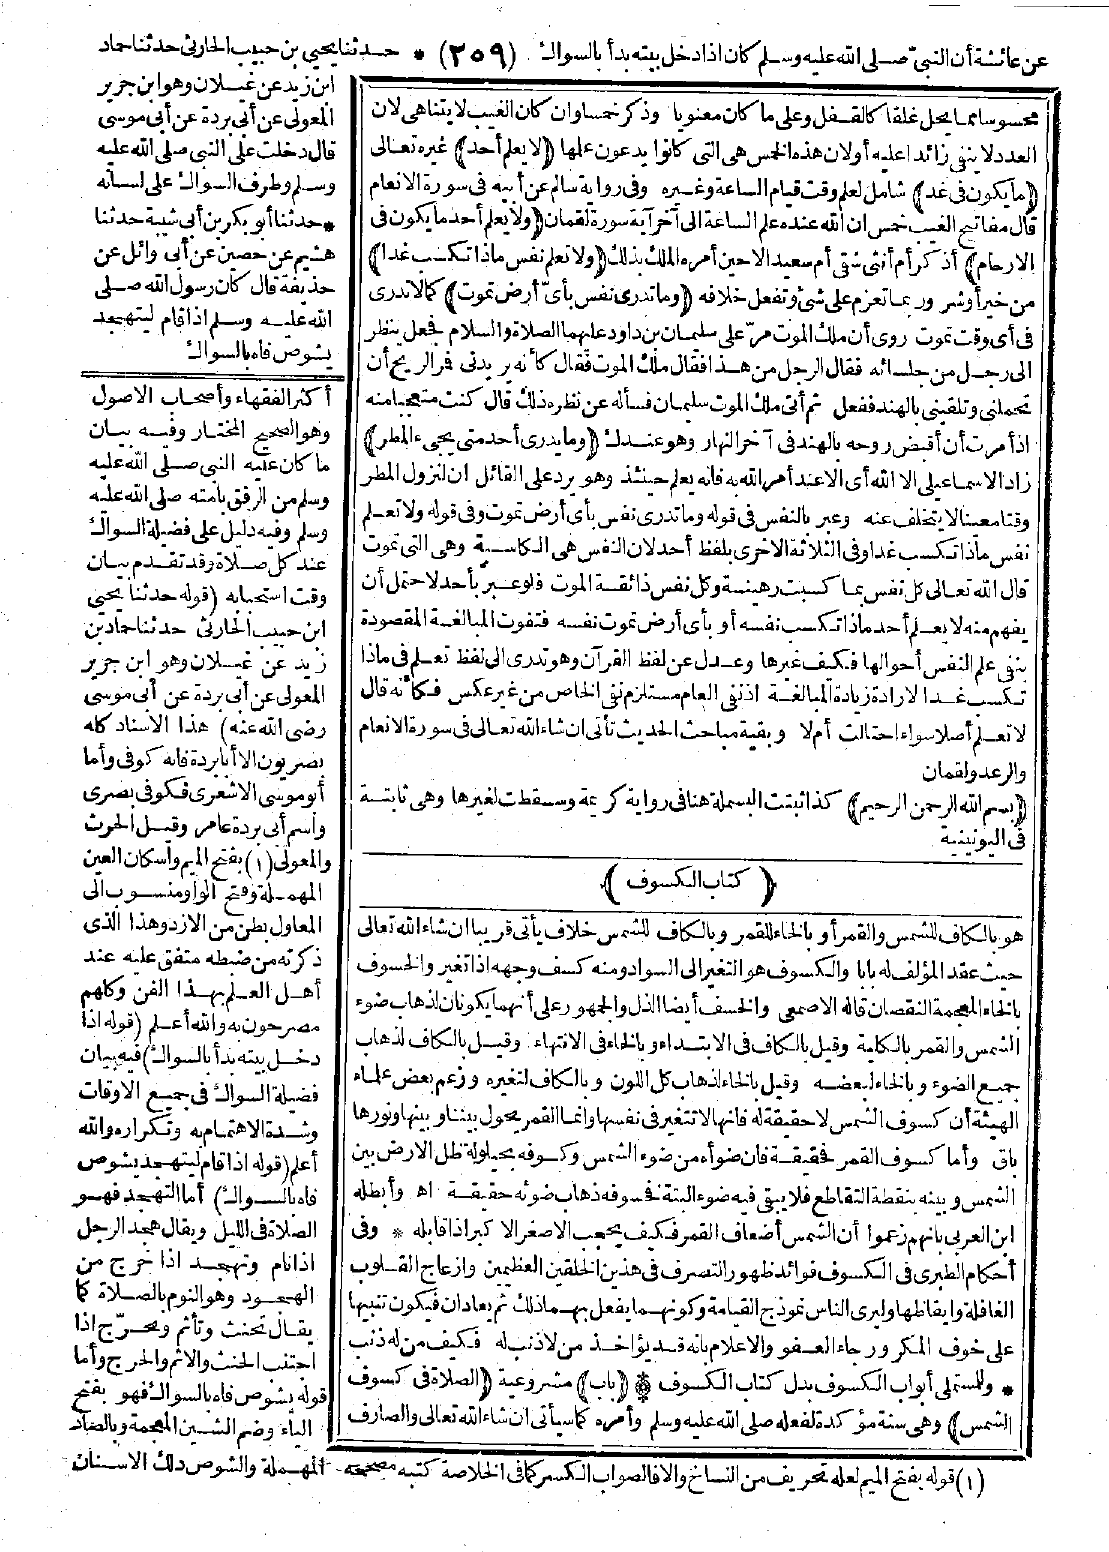 عن عائشة أن النبي صلى الله عليه وسلم كان اذا دخل بيته بدأ بالسواك (٢٥٩) * حدثنا يحيى بن حبيب الحارثى حدثنا حماد
ابن زيد عن غيلان وهو ابن جرير
المعولى عن أبى بردة عن أبى موسى
قال دخلت على النبى صلى الله عليه
وسلم وطرف السواك على لسانه
* حدثنا أبو بكر بن أبى شيبة حدثنا
هشيم عن حصين عن أبى وائل عن
حذيفة قال كان رسول الله صلى
الله عليه وسلم اذا قام ليتهجد
يشوص فاه بالسواك
محسوسا مما يحل غلقا كالقفل وعلى ما كان معنويا وذكر خمسا وان كان الغيب لا يتناهى لان
العدد لا ينفى زائدا عليه أولان هذه الخمس هى التى كانوا يدعون علمها (لا يعلم أحد) غيره تعالى
(ما يكون فى غد) شامل لعلم وقت قيام الساعة وغيره وفى رواية سالم عن أبيه فى سورة الانعام
قال مفاتيح الغيب خمس ان الله عنده علم الساعة الى آخر آية سورة لقمان (ولا يعلم أحد ما يكون فى
الارحام) أذكر أم أنثى شقى أم سعيد الا حين أمره الملك بذلك (ولا تعلم نفس ماذا تكسب غدا)
من خير أو شر وربما تعزم على شئ وتفعل خلافه (وما تدرى نفس بأى أرض تموت) كما لا تدرى
فى أى وقت تموت روى أن ملك الموت مر على سليمان بن داود عليهما الصلاة والسلام فجعل ينظر
الى رجل من جلسائه فقال الرجل من هذا فقال ملك الموت فقال كأنه يريدنى فر الريح أن
تحملنى وتلقينى بالهند ففعل ثم أتى ملك الموت سليمان فسأله عن نظره ذلك قال كنت متعجبا منه
اذ أمرت أن أقبض روحه بالهند فى آخر النهار وهو عندك (وما يدرى أحد متى يجىء المطر)
زاد الاسماعيلى الا الله أى الا عند أمر الله به فانه يعلم حينئذ وهو يرد على القائل ان لنزول المطر
وقتا معينا لا يتخلف عنه وعبر بالنفس فى قوله وما تدرى نفس بأى أرض تموت وفى قوله ولا تعلم
نفس ماذا تكسب غدا وفى الثلاثة الاخرى بلفظ أحد لان النفس هى الكاسبة وهى التى تموت
قال الله تعالى كل نفس بما كسبت رهينة وكل نفس ذائقة الموت فلو عبر بأحد لاحتمل أن
يفهم منه لا يعلم أحد ماذا تكسب نفسه أو بأى أرض تموت نفسه فتفوت المبالغة المقصودة
بنفى علم النفس أحوالها فكيف غيرها وعدل عن لفظ القرآن وهو تدرى الى لفظ تعلم فى ماذا
تكسب غدا لارادة زيادة المبالغة اذ نفى العام مستلزم نفى الخاص من غير عكس فكأنه قال
لا تعلم أصلا سواء احتالت أم لا وبقية مباحث الحديث تأتى ان شاء الله تعالى فى سورة الانعام
والرعد ولقمان
(بسم الله الرحمن الرحيم) كذا ثبتت البسملة هنا فى رواية كريمة وسقطت لغيرها وهى ثابتة
فى اليونينية
(كتاب الكسوف)
هو بالكاف للشمس والقمر أو بالخاء للقمر وبالكاف للشمس خلاف يأتى قريبا ان شاء الله تعالى
حيث عقد المؤلف له بابا والكسوف هو التغير الى السواد ومنه كسف وجهه اذا تغير والخسوف
بالخاء المعجمة النقصان قاله الاصمعى والخسف أيضا الذل والجمهور على أنهما يكونان لذهاب ضوء
الشمس والقمر بالكلية وقيل بالكاف فى الابتداء وبالخاء فى الانتهاء وقيل بالكاف لذهاب
جميع الضوء وبالخاء لبعضه وقيل بالخاء لذهاب كل اللون وبالكاف لتغيره وزعم بعض علماء
الهيئة أن كسوف الشمس لا حقيقة له فانها لا تتغير فى نفسها وانما القمر يحول بيننا وبينها ونورها
باق وأما كسوف القمر فحقيقة فان ضوأه من ضوء الشمس وكسوفه بحيلولة ظل الارض بين
الشمس وبينه بنقطة التقاطع فلا يبقى فيه ضوء البتة فخسوفه ذهاب ضوئه حقيقة اه وأبطله
ابن العربى بانهم زعموا أن الشمس أضعاف القمر فكيف يحجب الاصغر الاكبر اذا قابله * وفى
أحكام الطبرى فى الكسوف فوائد ظهور التصرف فى هذين الخلقين العظيمين وازعاج القلوب
الغافلة وايقاظها وليرى الناس نموذج القيامة وكونهما يفعل بهما ذلك ثم يعادان فيكون تنبيها
على خوف المكر ورجاء العفو والاعلام بانه قد يؤاخذ من لا ذنب له فكيف من له ذنب
* وللمستملى أبواب الكسوف بدل كتاب الكسوف * (باب) مشروعية (الصلاة فى كسوف
الشمس) وهى سنة مؤكدة لفعله صلى الله عليه وسلم وأمره كما سيأتى ان شاء الله تعالى والصارف
أكثر الفقهاء وأصحاب الاصول
وهو الصحيح المختار وفيه بيان
ما كان عليه النبى صلى الله عليه
وسلم من الرفق بأمته صلى الله عليه
وسلم وفيه دليل على فضيلة السواك
عند كل صلاة وقد تقدم بيان
وقت استحبابه (قوله حدثنا يحيى
ابن حبيب الحارثى حدثنا حماد بن
زيد عن غيلان وهو ابن جرير
المعولى عن أبى بردة عن أبى موسى
رضى الله عنه) هذا الاسناد كله
بصريون الا أبا بردة فانه كوفى وأما
أبو موسى الاشعرى فكوفى بصرى
واسم أبى بردة عامر وقيل الحرث
والمعولى (١) بفتح الميم واسكان العين
المهملة وفتح الواو منسوب الى
المعاول بطن من الازد وهذا الذى
ذكرته من ضبطه متفق عليه عند
أهل العلم بهذا الفن وكلهم
مصرحون به والله أعلم (قوله اذا
دخل بيته بدأ بالسواك) فيه بيان
فضيلة السواك فى جميع الاوقات
وشدة الاهتمام به وتكراره والله
أعلم (قوله اذا قام ليتهجد يشوص
فاه بالسواك) أما التهجد فهو
الصلاة فى الليل ويقال هجد الرجل
اذا نام وتهجد اذا خرج من
الهجود وهو النوم بالصلاة كما
يقال تحنث وتأثم وتحرج اذا
اجتنب الحنث والاثم والحرج وأما
قوله يشوص فاه بالسواك فهو بفتح
الياء وضم الشين المعجمة وبالصاد
المهملة والشوص دلك الاسنان
(١) قوله بفتح الميم لعله تحريف من النساخ والا فالصواب الكسر كما فى الخلاصة كتبه مصححه